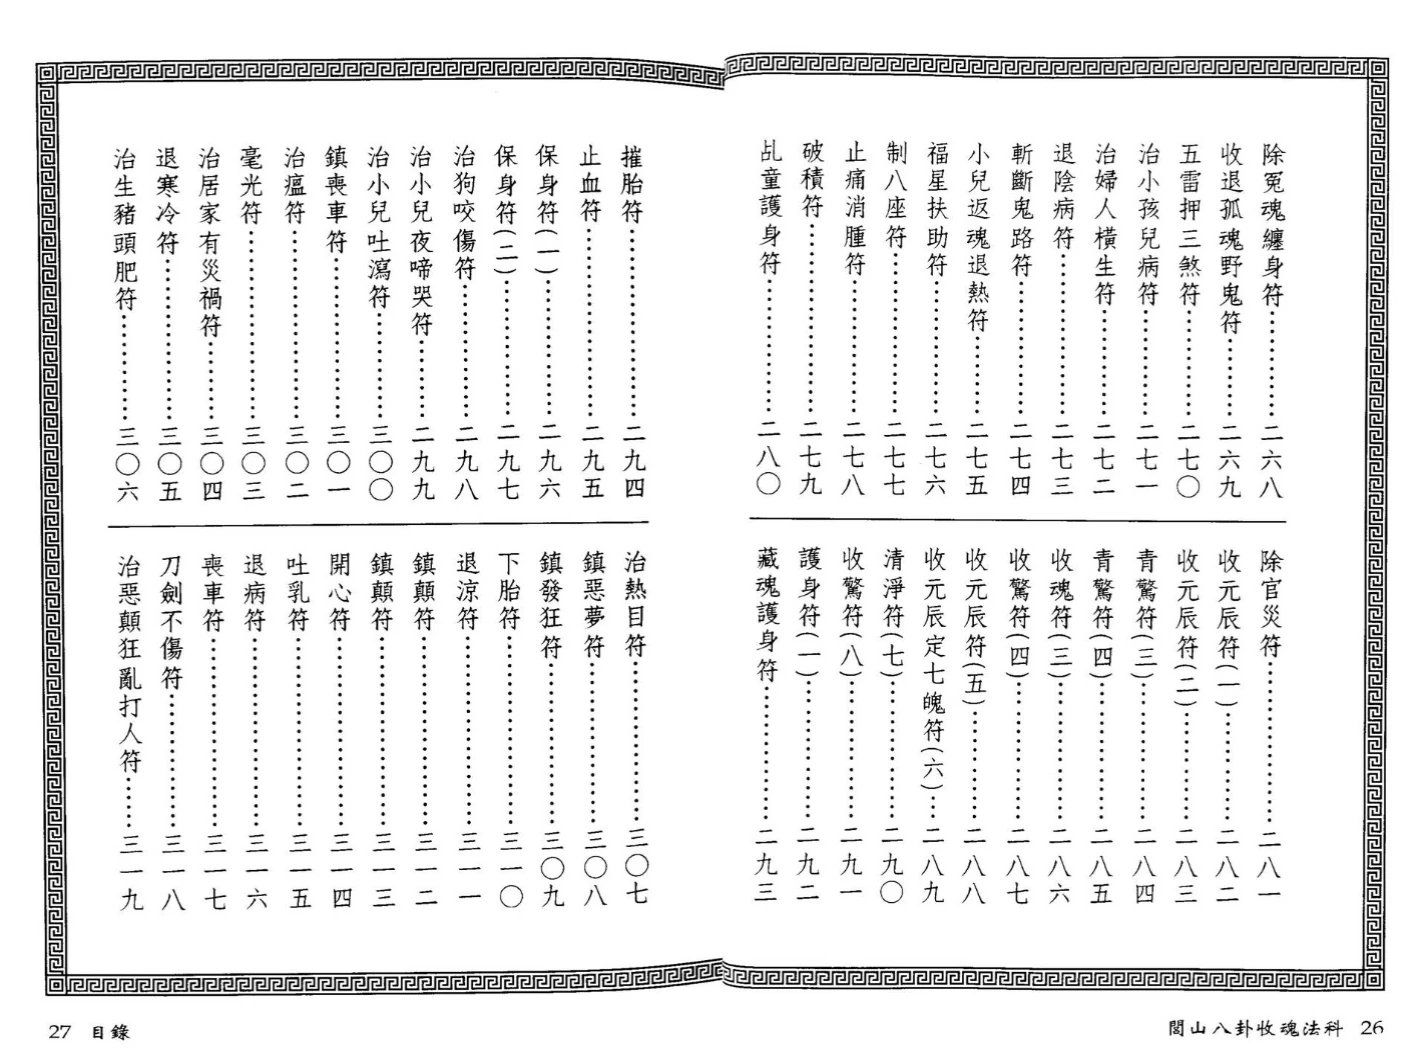 除冤魂纏身符…………二六八
收退孤魂野鬼符…………二六九
五雷押三煞符…………二七〇
治小孩兒病符…………二七一
治婦人橫生符…………二七二
退陰病符…………二七三
斬斷鬼路符…………二七四
小兒返魂退熱符…………二七五
福星扶助符…………二七六
制八座符…………二七七
止痛消腫符…………二七八
破積符…………二七九
乩童護身符…………二八〇
除官災符…………二八一
收元辰符(一)…………二八二
收元辰符(二)…………二八三
青驚符(三)…………二八四
青驚符(四)…………二八五
收魂符(三)…………二八六
收驚符(四)…………二八七
收元辰符(五)…………二八八
收元辰定七魄符(六)…二八九
清淨符(七)…………二九〇
收驚符(八)…………二九一
護身符(一)…………二九二
藏魂護身符…………二九三
閭山八卦收魂法科 26
摧胎符…………二九四
止血符…………二九五
保身符(一)…………二九六
保身符(二)…………二九七
治狗咬傷符…………二九八
治小兒夜啼哭符…………二九九
治小兒吐瀉符…………三〇〇
鎮喪車符…………三〇一
治瘟符…………三〇二
毫光符…………三〇三
治居家有災禍符…………三〇四
退寒冷符…………三〇五
治生豬頭肥符…………三〇六
治熱目符…………三〇七
鎮惡夢符…………三〇八
鎮發狂符…………三〇九
下胎符…………三一〇
退涼符…………三一一
鎮顛符…………三一二
鎮顛符…………三一三
開心符…………三一四
吐乳符…………三一五
退病符…………三一六
喪車符…………三一七
刀劍不傷符…………三一八
治惡顛狂亂打人符……三一九
27 目錄